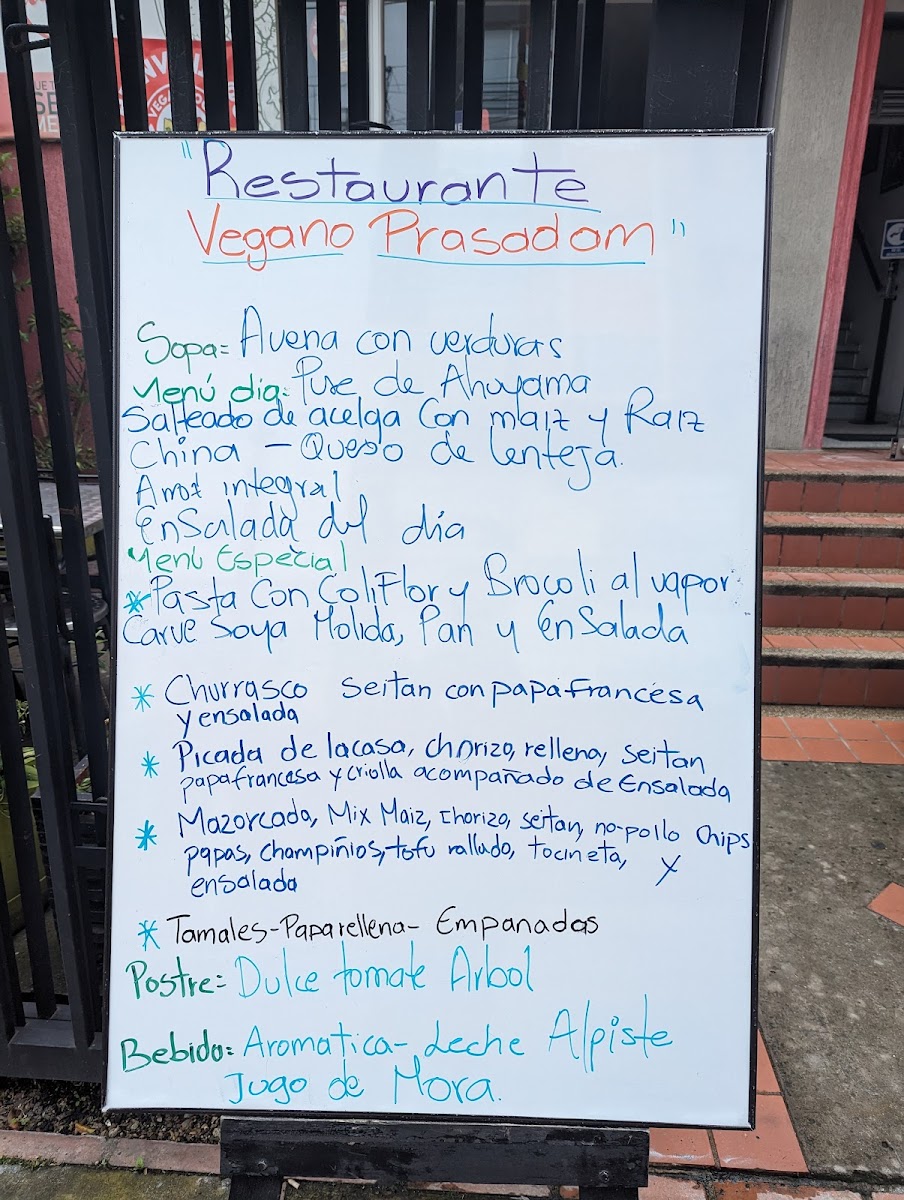 "Restaurante
Vegano Prasadam"
Sopa= Avena con verduras
Menú dia: Pure de Ahuyama
Salteado de acelga Con maiz y Raiz
China - Queso de lenteja.
Arroz integral
Ensalada del día
Menú Especial
* Pasta Con Coliflor y Brocoli al vapor
Carve Soya Molida, Pan y Ensalada
* Churrasco seitan con papa francesa
y ensalada
* Picada de la casa, chorizo, rellena, seitan
papa francesa y criolla acompañado de Ensalada
* Mazorcada, Mix Maiz, chorizo, seitan, no-pollo chips
papas, champiños, tofu rallado, tocineta, y
ensalada
* Tamales-Papa rellena- Empanadas
Postre= Dulce tomate Arbol
Bebida= Aromatica- Leche Alpiste
Jugo de Mora.